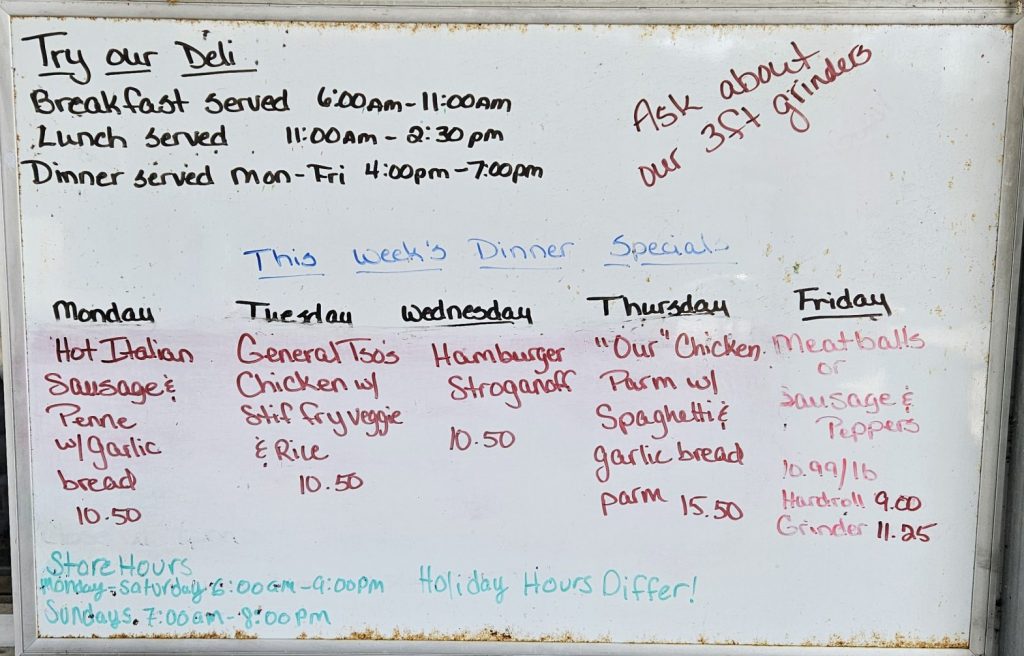 Try our Deli.
Breakfast served 6:00AM-11:00AM
Lunch served 11:00AM-2:30pm
Dinner served Mon-Fri 4:00pm-7:00pm
Ask about
our 3ft grinders
This Week's Dinner Specials
Monday
Hot Italian
Sausage &
Penne
w/garlic
bread
10.50
Tuesday
General Tso's
Chicken w/
Stif fry veggie
& Rice
10.50
Wednesday
Hamburger
Stroganoff
10.50
Thursday
"Our" Chicken
Parm w/
Spaghetti &
garlic bread
parm 15.50
Friday
Meatballs
or
Sausage &
Peppers
10.99/lb
Hardroll 9.00
Grinder 11.25
Store Hours
Monday-Saturday 6:00am-9:00pm
Sundays. 7:00am-8:00pm
Holiday Hours Differ!